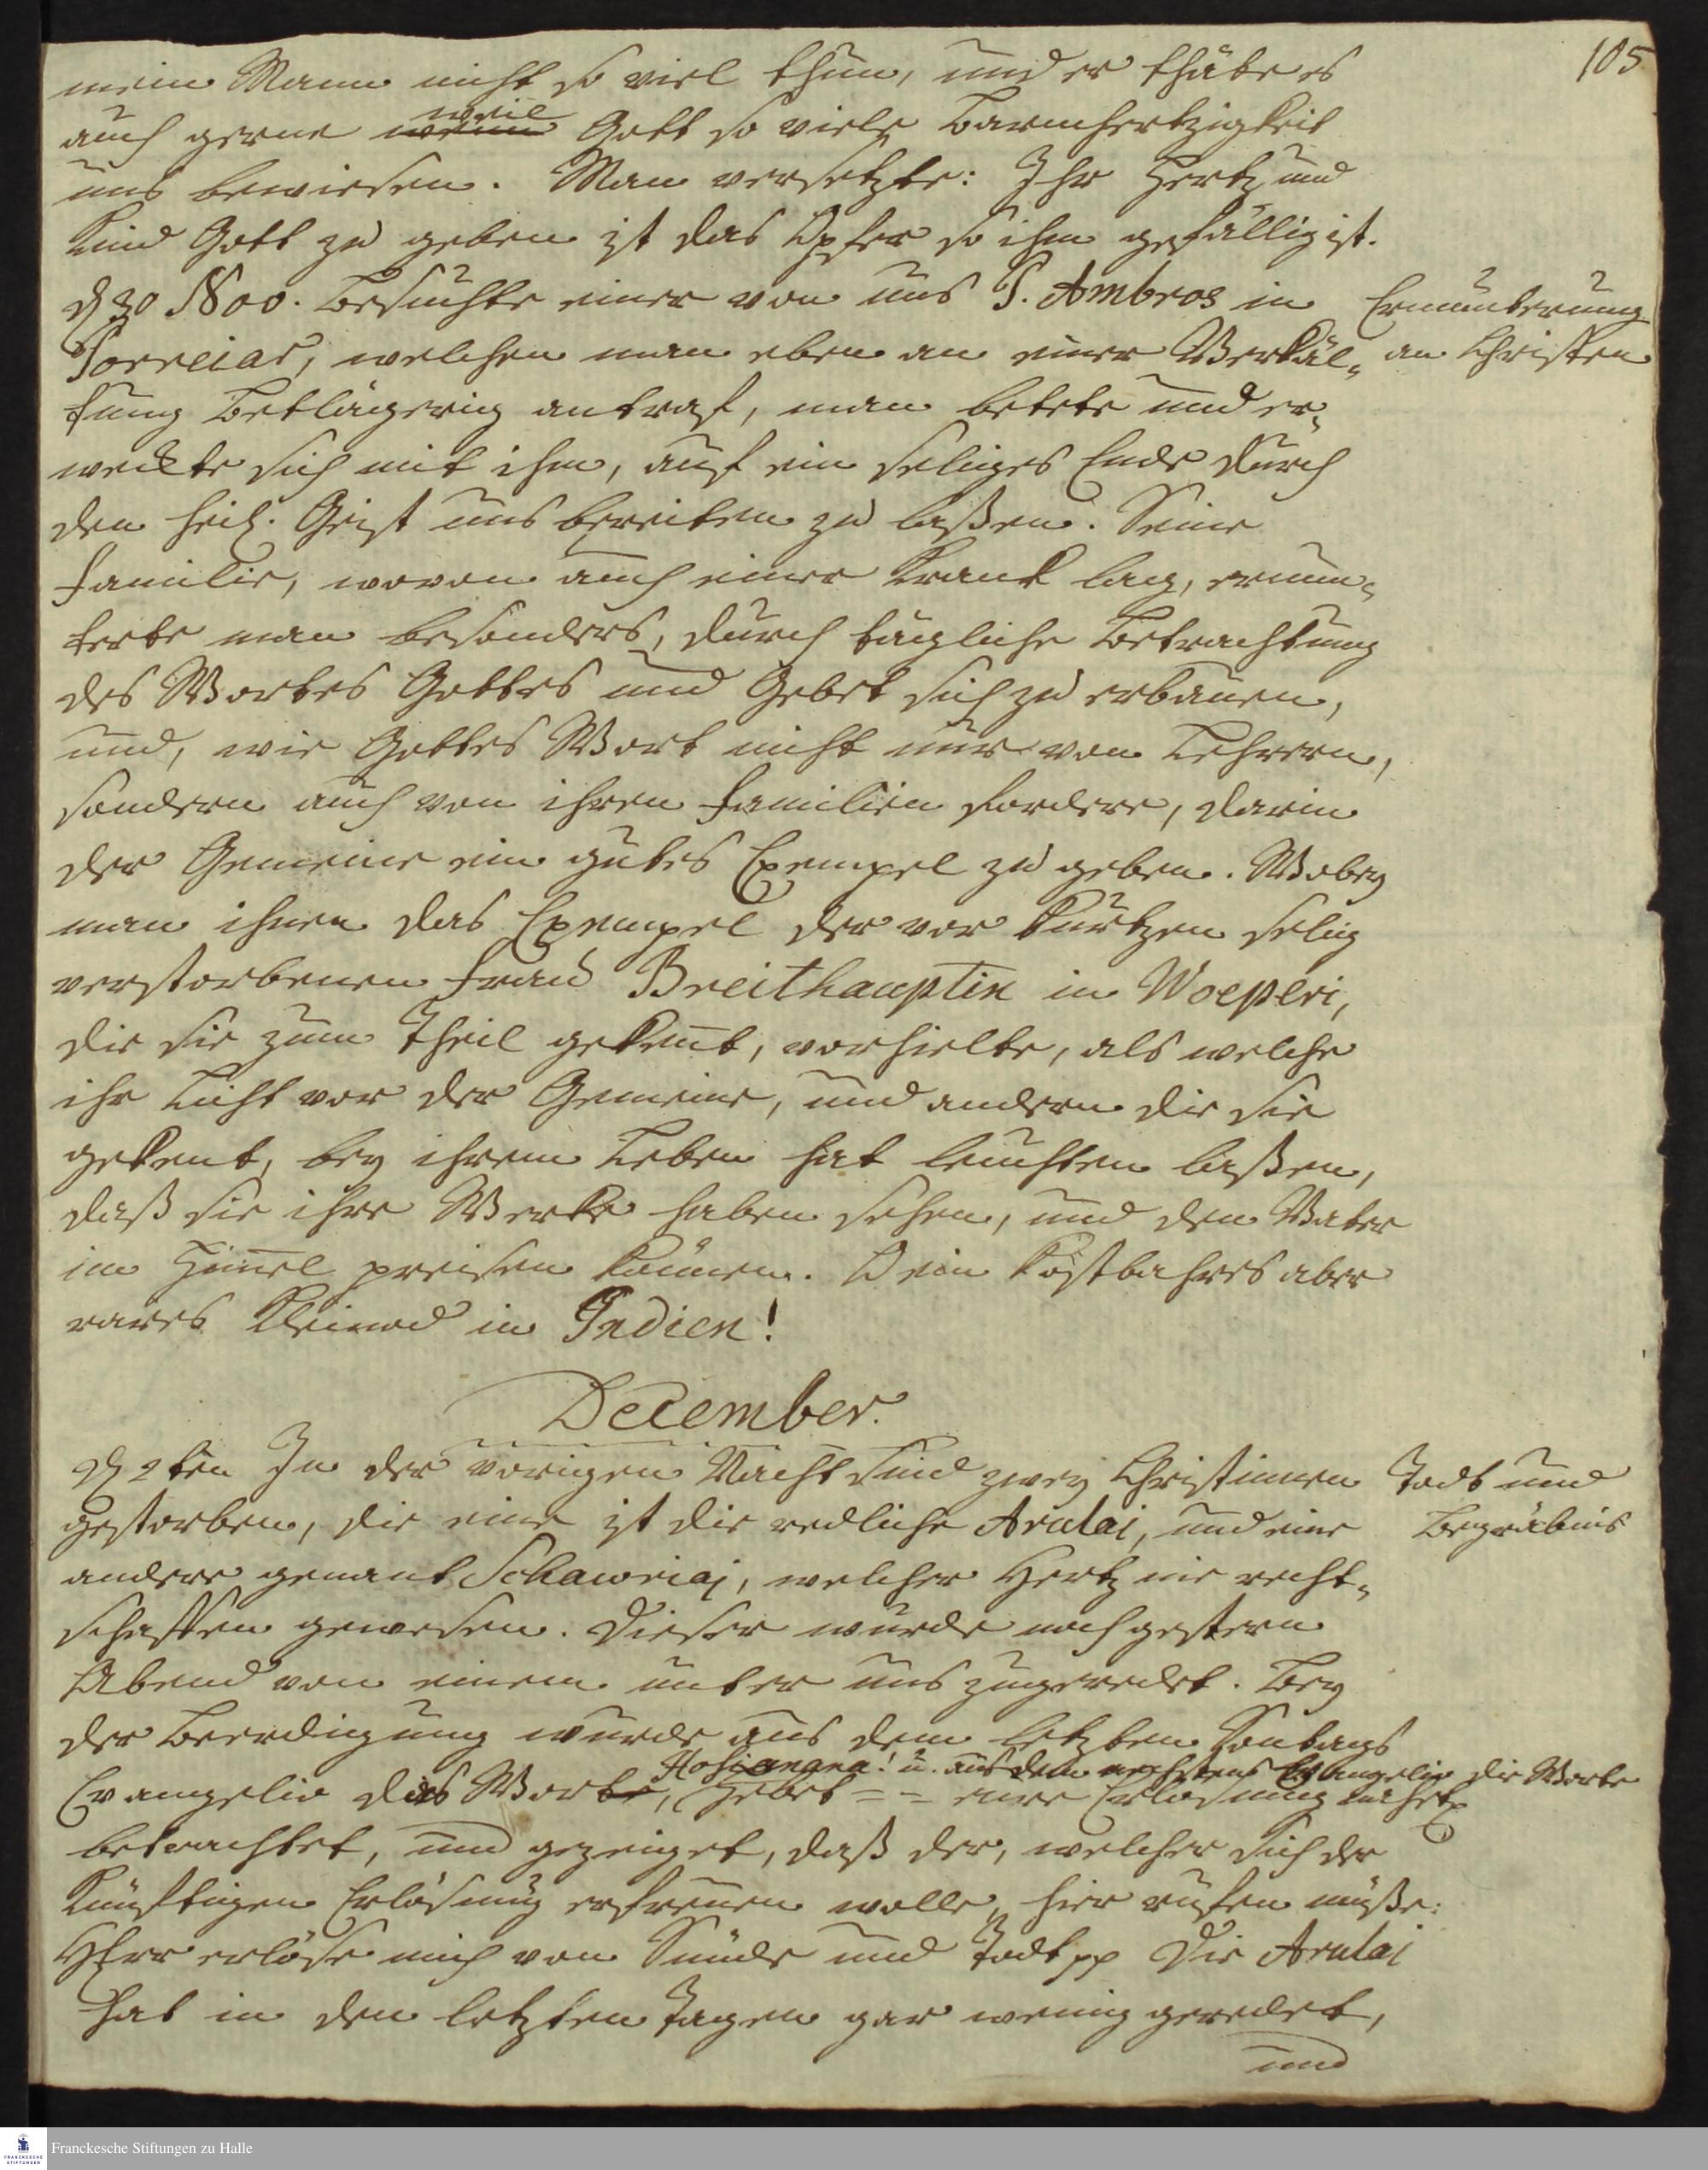 105
mein Mann nicht so viel thun, und er thäte es
auch gerne wenn weil Gott so viele Barmhertzigkeit
uns bewiesen. Man versetzte: Ihr Hertz und
Kind Gott zu geben ist das Opfer so ihm gefällig ist.
d 30 Nov. Besuchte einer von uns P. Ambros in
Ermunterung
Porreiar, welchen man eben an einer Verkäl-
an Christen
tung Betlägerig antraf, man betete und er-
weckte sich mit ihm, auf ein seliges Ende durch
den heil. Geist uns bereiten zu laßen. Seine
Familie, wovon auch einer krank lag, ermun-
terte man besonders, durch tägliche Betrachtung
des Wortes Gottes und Gebet sich zu erbauen,
und, wie Gottes Wort nicht nur von Lehrern,
sondern auch von ihren Familien fordere, darin
der Gemeine ein gutes Exempel zu geben. Wobey
man ihnen das Exempel der vor kurtzen selig
verstorbenen Frau Breithauptin in Woeperi,
die sie zum Theil gekent, vorhielte, als welche
ihr Licht vor der Gemeine, und andern die sie
gekent, bey ihrem Leben hat leuchten laßen,
daß sie ihre Werke haben sehen, und den Vater
im Himel preisen können. O ein kostbahres aber
rares Kleinod in Indien!
December.
d 2ten In der vorigen Nacht sind zwey Christinnen
Todt und
gestorben, die eine ist die redliche Arulai, und eine
Begräbnis
andere genant Schawriai, welcher Hertz nie recht-
schaffen gewesen. Dieser wurde noch gestern
Abend von einem unter uns zugeredet. Bey
der Beerdigung wurde aus dem letzten Sontags
Hosianna! u. aus dem nechsten Evangelio die Worte
Evangelio das Wort, Hebet = = eure Erlösung nahet
betrachtet, und gezeiget, daß der, welcher sich der
künftigen Erlösung erfreuen wolle, hier rufen müße:
HErr erlöse mich von Sünde und Todt pp Die Arulai
hat in den letzten Tagen gar wenig geredet,
und
Franckesche Stiftungen zu Halle